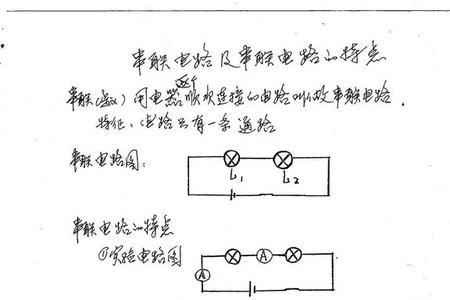 串联电路及串联电路的特点
串联(定义)用电器逐个顺次连接的电路叫做串联电路.
特征:电路只有一条通路
串联电路图:
L₁ L₂
串联电路的特点
①实验电路图
A
A